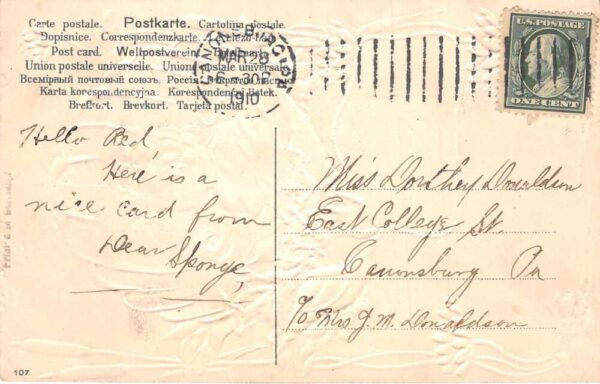 Carte postale. Postkarte. Cartolina postale.
Dopisnice. Correspondenzkarte.
Post card. Weltpostverein.
Union postale universelle. Unione postale universale
Всемірный почтовый союзъ.
Karta korespondencyjna. Korespondenční lístek.
Brefkort. Brevkort. Tarjeta postal.
MAR 28
1910
U.S. POSTAGE
ONE CENT
Hello Red,
Here is a
nice card from
Dear Sponge,
Miss Dorthey Donaldson
East College St.
Canonsburg Pa
c/o Mrs J. M. Donaldson
107